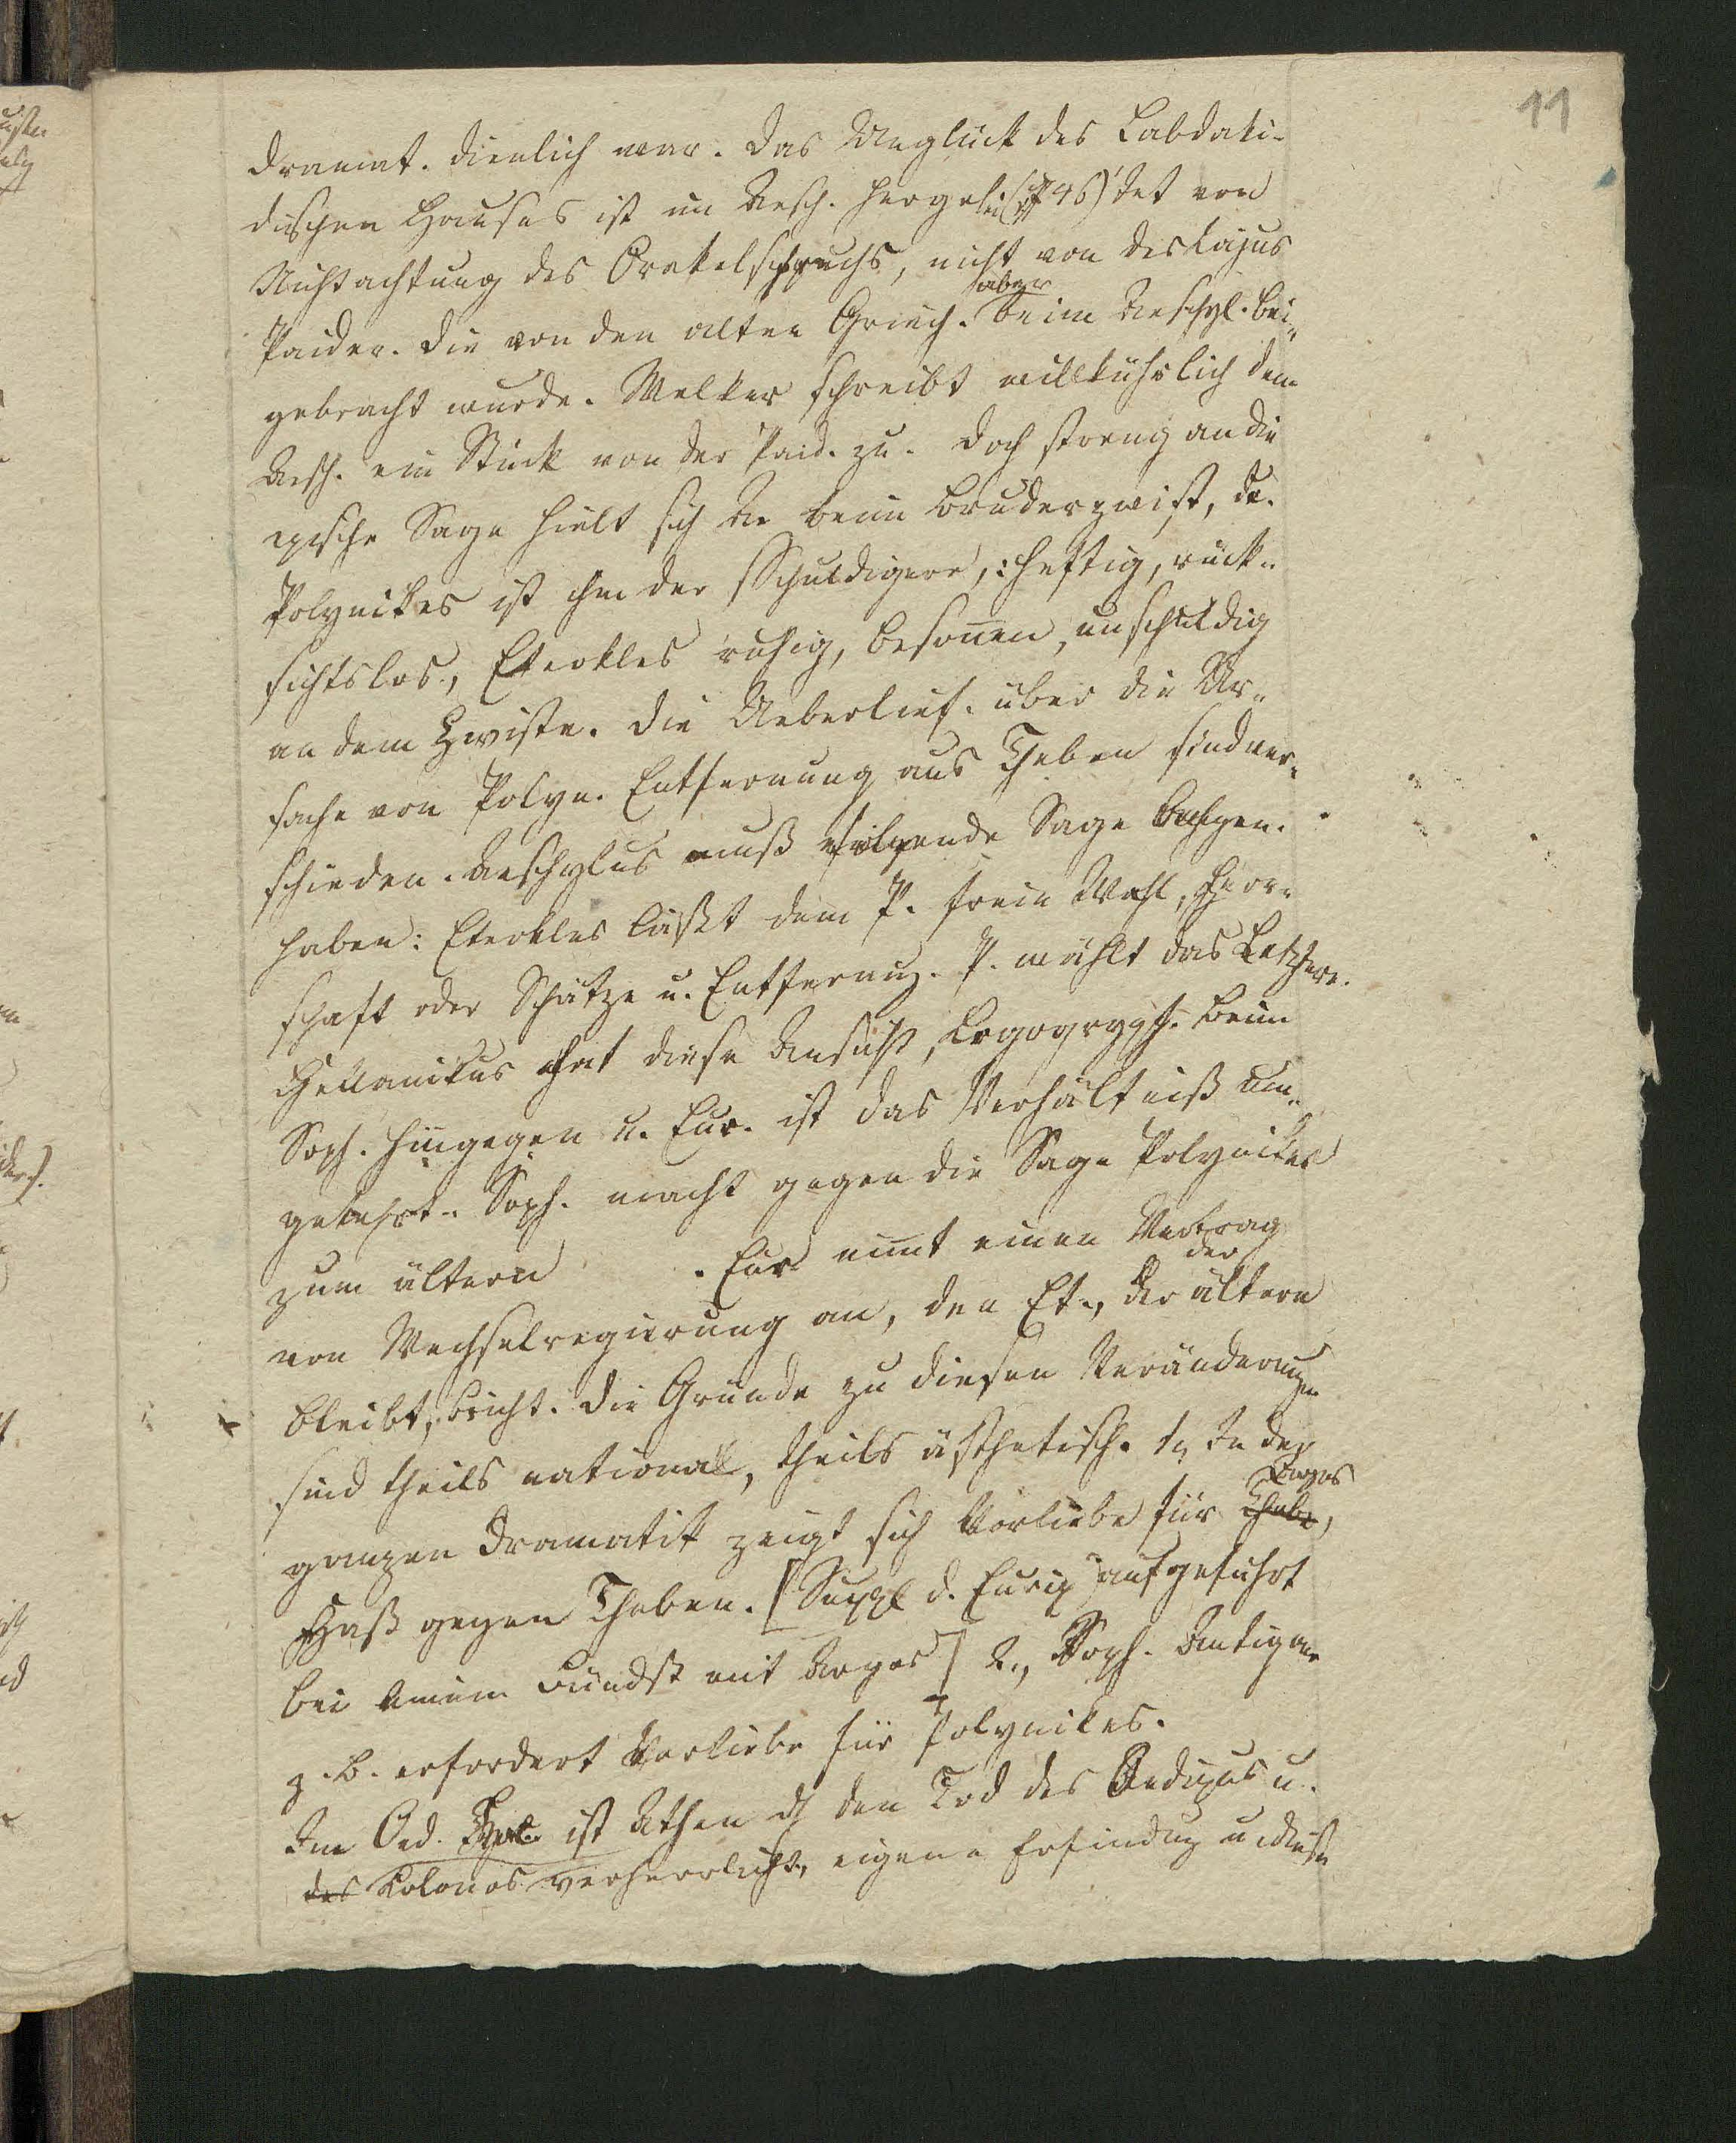 11
dramat. dienlich war. Das Unglück des Labdaki-
dischen Hauses ist im Aesch. hergelei(745)tet von
Nichtachtung des Orakelspruchs, nicht von des Lajus
Paider. die von den alten Griech. aber beim Aeschyl. bei-
gebracht wurde. Welker schreibt willkührlich dem
Aesch. ein Stück von der Paid. zu. Doch streng an die
epische Sage hielt sich Ae beim Bruderzwist, de.
Polynikes ist ihm der Schuldigere, heftig, rück-
sichtslos, Eteokles ruhig, besonnen, unschuldig
an dem Zwiste. Die Ueberlief. über die Ur-
sache von Polyn. Entfernung aus Theben sind ver-
schieden. Aeschylus muß folgende Sage befolgen.
haben: Eteokles läßt dem P. freie Wahl, Herr-
schaft oder Schätze u. Entfernug. P. wählt das Letztere.
Hellanikus hat diese Ansicht, Logograph. Beim
Soph. hingegen u. Eur. ist das Verhältniß um-
gekehrt. Soph. macht gegen die Sage Polynikes
zum ältern . Eur nimt einen Vertrag
von Wechselregierung an, den Et., der der ältere
bleibt, bricht. Die Gründe zu diesen Veränderungen
sind theils national, theils ästhetisch. 1, In der
ganzen Dramatik zeigt sich Vorliebe für Thebe, Argos
Haß gegen Theben. [Suppl d. Eurip aufgeführt
bei einem Bündß mit Argos] 2., Soph. Antigone
z. B. erfordert Vorliebe für Polynikes.
Im Oed. Kol. ist Athen d den Tod des Oedipus u.
des Kolonos verherrlicht, eigene Erfindug u diese